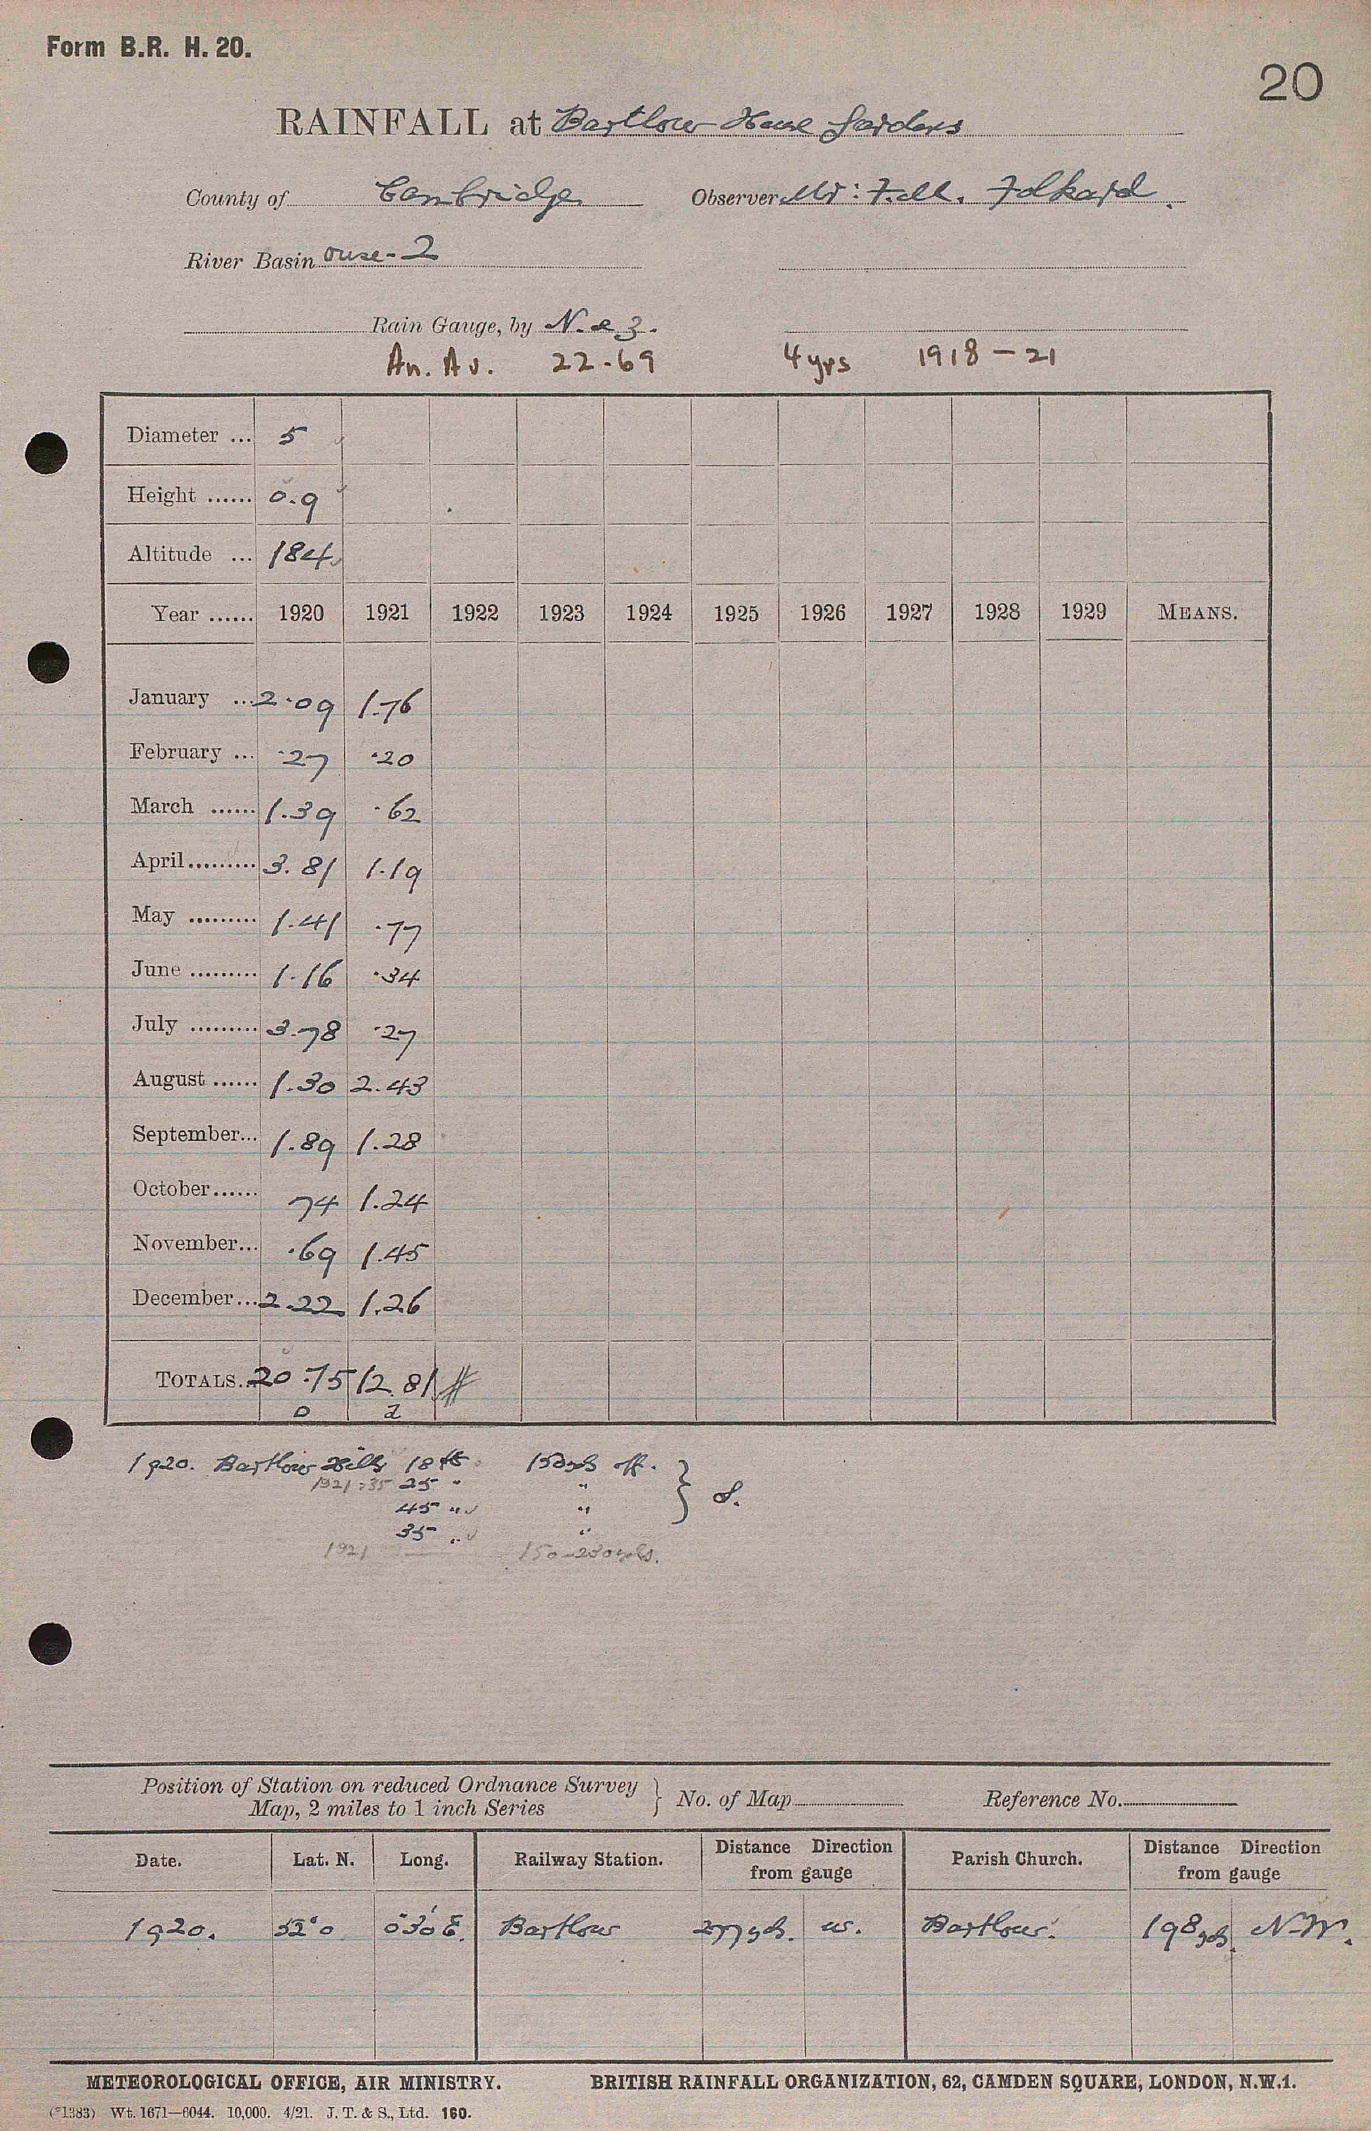 Form B.R. H. 20.
20
RAINFALL at Bartlow House Gardens
County of Cambridge Observer Mr: F.M. Folkard.
River Basin Ouse-2
Rain Gauge, by N. & Z.
An. Av. 22.69 4 yrs 1918-21
Diameter ... 5
Height ...... 0.9
Altitude ... 184
Year ...... 1920 1921 1922 1923 1924 1925 1926 1927 1928 1929 MEANS.
January ... 2.09 1.76
February ... .27 .20
March ...... 1.39 .62
April ......... 3.81 1.19
May ......... 1.41 .77
June ......... 1.16 .34
July ......... 3.78 .27
August ...... 1.30 2.43
September... 1.89 1.28
October...... 74 1.24
November... .69 1.45
December... 2.22 1.26
TOTALS... 20.75 12.81 #
D d
1920. Bartlow Hills 18 ft 15 yds off.
1921 : 35 25 " "
45 " " } S.
35 " "
1921 — 150-230 yds.
Position of Station on reduced Ordnance Survey Map, 2 miles to 1 inch Series } No. of Map Reference No.
Date. Lat. N. Long. Railway Station. Distance Direction from gauge Parish Church. Distance Direction from gauge
1920. 52° 0 0° 30' E. Bartlow 277 yds. W. Bartlow. 198 yds. N.W.
METEOROLOGICAL OFFICE, AIR MINISTRY. BRITISH RAINFALL ORGANIZATION, 62, CAMDEN SQUARE, LONDON, N.W.1.
(*1383) Wt. 1671—6044. 10,000. 4/21. J. T. & S., Ltd. 160.